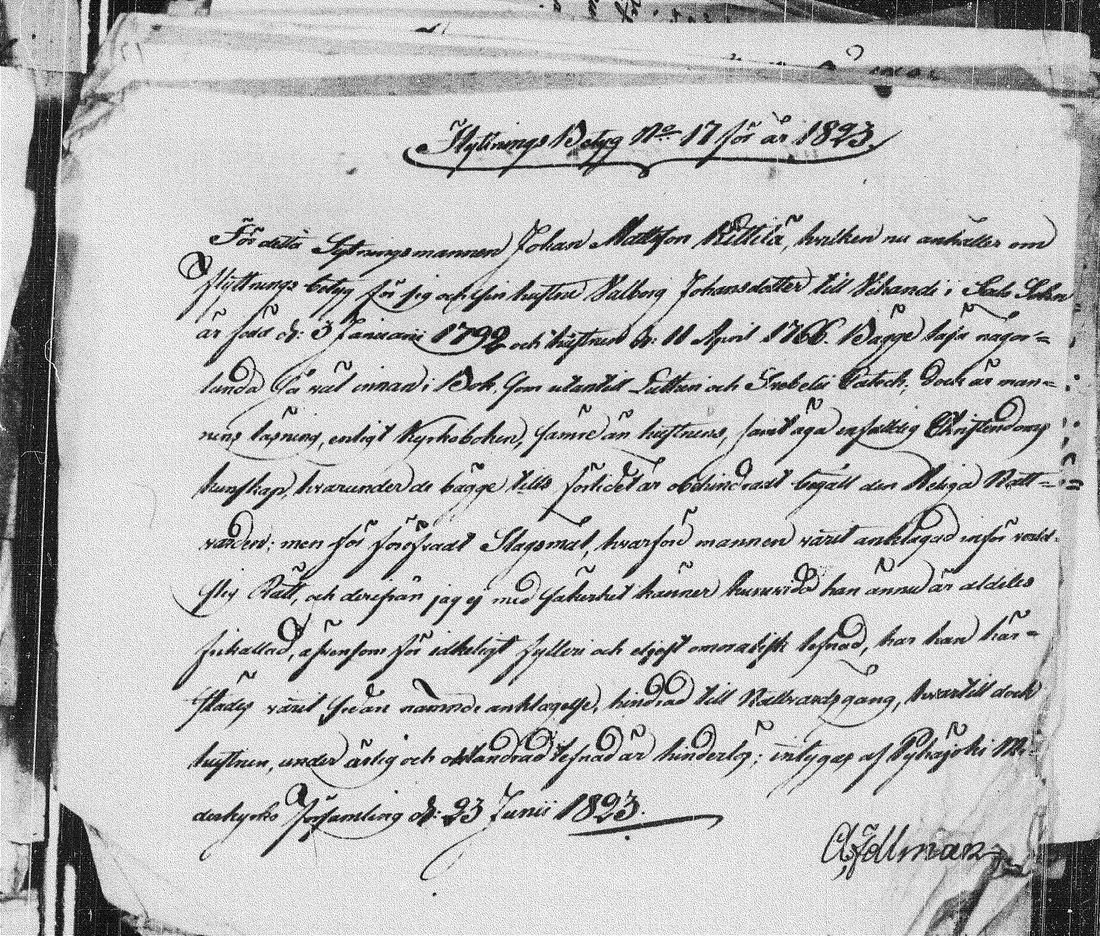 Flyttnings Betyg No 17 för år 1823.
För detta Sytningsmannen Johan Mattsson Kittilä, hvilken nu anhåller om
Flyttnings betyg för sig och sin hustru Valborg Johansdotter till Vihandi i Salo Sokn
är född d: 3 Januarii 1792 och hustrun d: 11 April 1766. Bägge läsa någor=
lunda så väl innan i Bok, som utantill Lutheri och Svebelii Catech, dock är man=
nens läsning, enligt Kyrkoboken, sämre än hustruns, samt äga enfaldig Christendoms
kunskap, hvarunder de bägge tills förledet år obehindradt begått den Heliga Natt=
varden; men för föröfvadt Slagsmål, hvarföre mannen varit anklagad inför verld-
slig Rätt, och derifrån jag ej med säkerhet känner huruvida han ännu är aldeles
frikallad, äfvensom för idkeligt fylleri och eljest omoralisk lefnad, har han här=
städes varit sedan nämnde anklagelse, hindrad till Nattvardsgång, hvartill dock
hustrun, under ärlig och oklandrad lefnad är hinderlös; intygas af Pyhäjoki Mo-
derkyrko Församling d: 23 Junii 1823.
Fellman